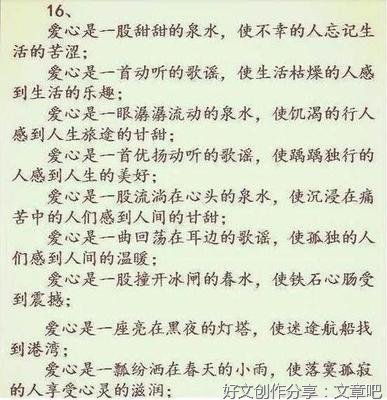 16、
爱心是一股甜甜的泉水，使不幸的人忘记生
活的苦涩；
爱心是一首动听的歌谣，使生活枯燥的人感
到生活的乐趣；
爱心是一眼潺潺流动的泉水，使饥渴的行人
感到人生旅途的甘甜；
爱心是一首优扬动听的歌谣，使踽踽独行的
人感到人生的美好；
爱心是一股流淌在心头的泉水，使沉浸在痛
苦中的人们感到人间的甘甜；
爱心是一曲回荡在耳边的歌谣，使孤独的人
们感到人间的温暖；
爱心是一股撞开冰闸的春水，使铁石心肠受
到震撼；
爱心是一座亮在黑夜的灯塔，使迷途航船找
到港湾；
爱心是一瓢纷洒在春天的小雨，使落寞孤寂
的人享受心灵的滋润；
好文创作分享：文章吧